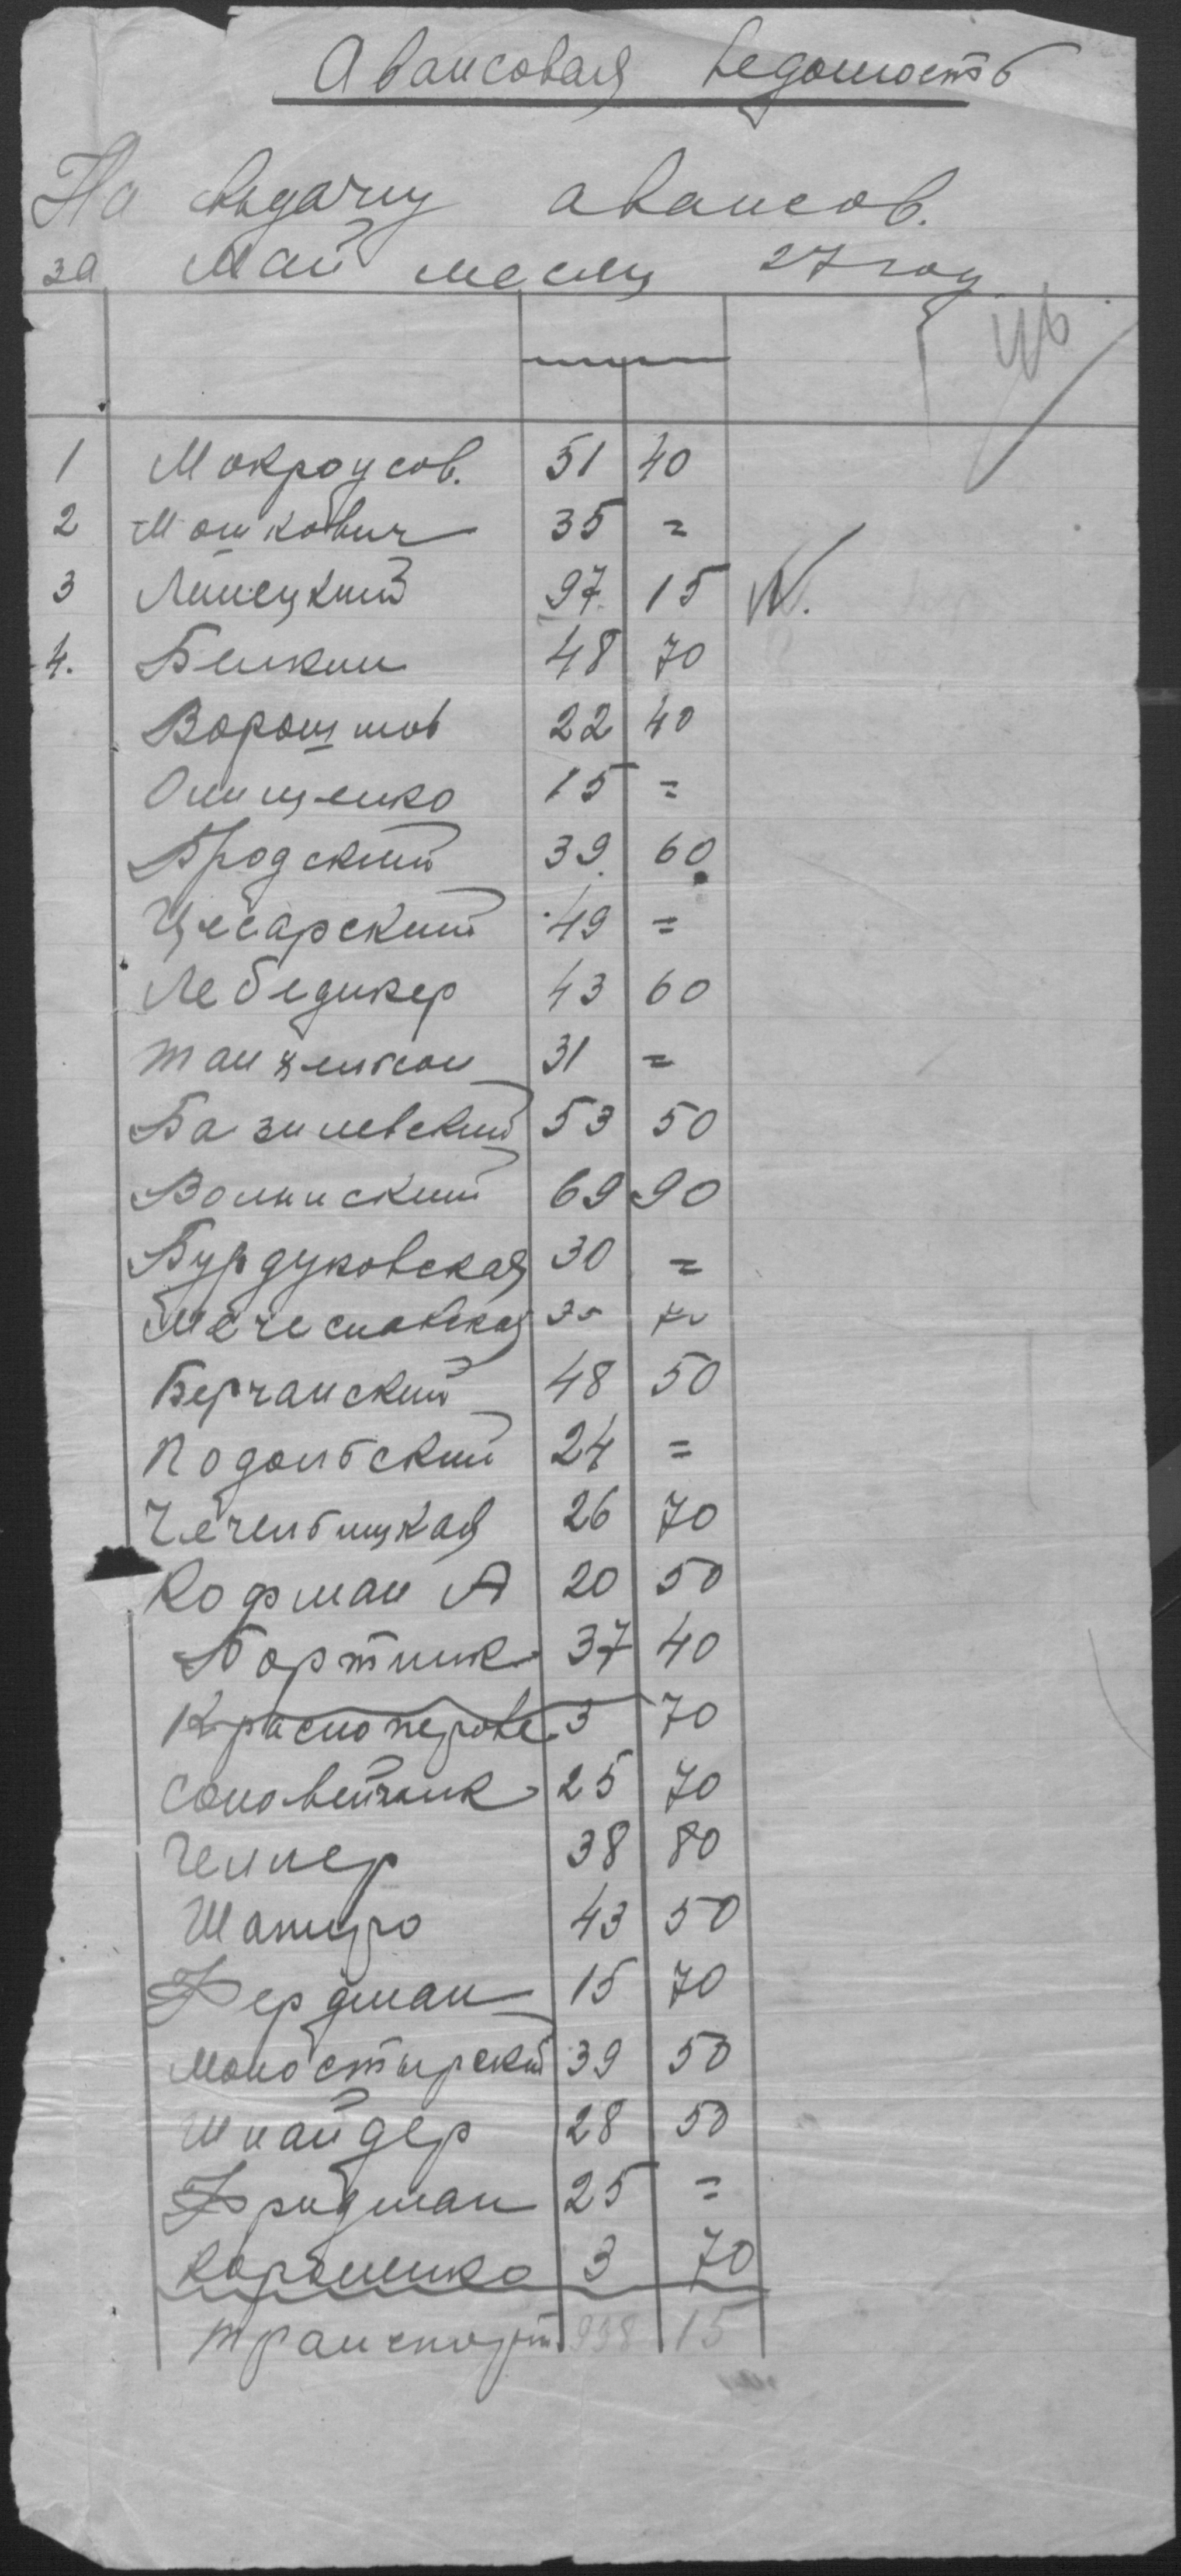 Авансовая ведомость
На выдачу авансов.
за Май месяц 27 году
1 Мокроусов. 51 40
2 Мошкович 35 =
3 Липецкий 97 15
4. Белкин 48 70
Ворошилов 22 40
Онищенко 15 =
Бродский 39 60
Цесарский 49 =
Лебединер 43 60
31 =
Базилевский 53 50
Волынский 69 90
Бурдуковская 30 =
Мечеславская 35 70
Берчанский 48 50
Подольський 24 =
Чечельницкая 26 70
Кофман А 20 50
Бортник 37 40
Красноперове 3 70
Соловейчик 25 70
38 80
Шапиро 43 50
Фердман 15 70
Моностырский 39 50
Шнайдер 28 50
Фридман 25 =
3 70
транспорт 998 15